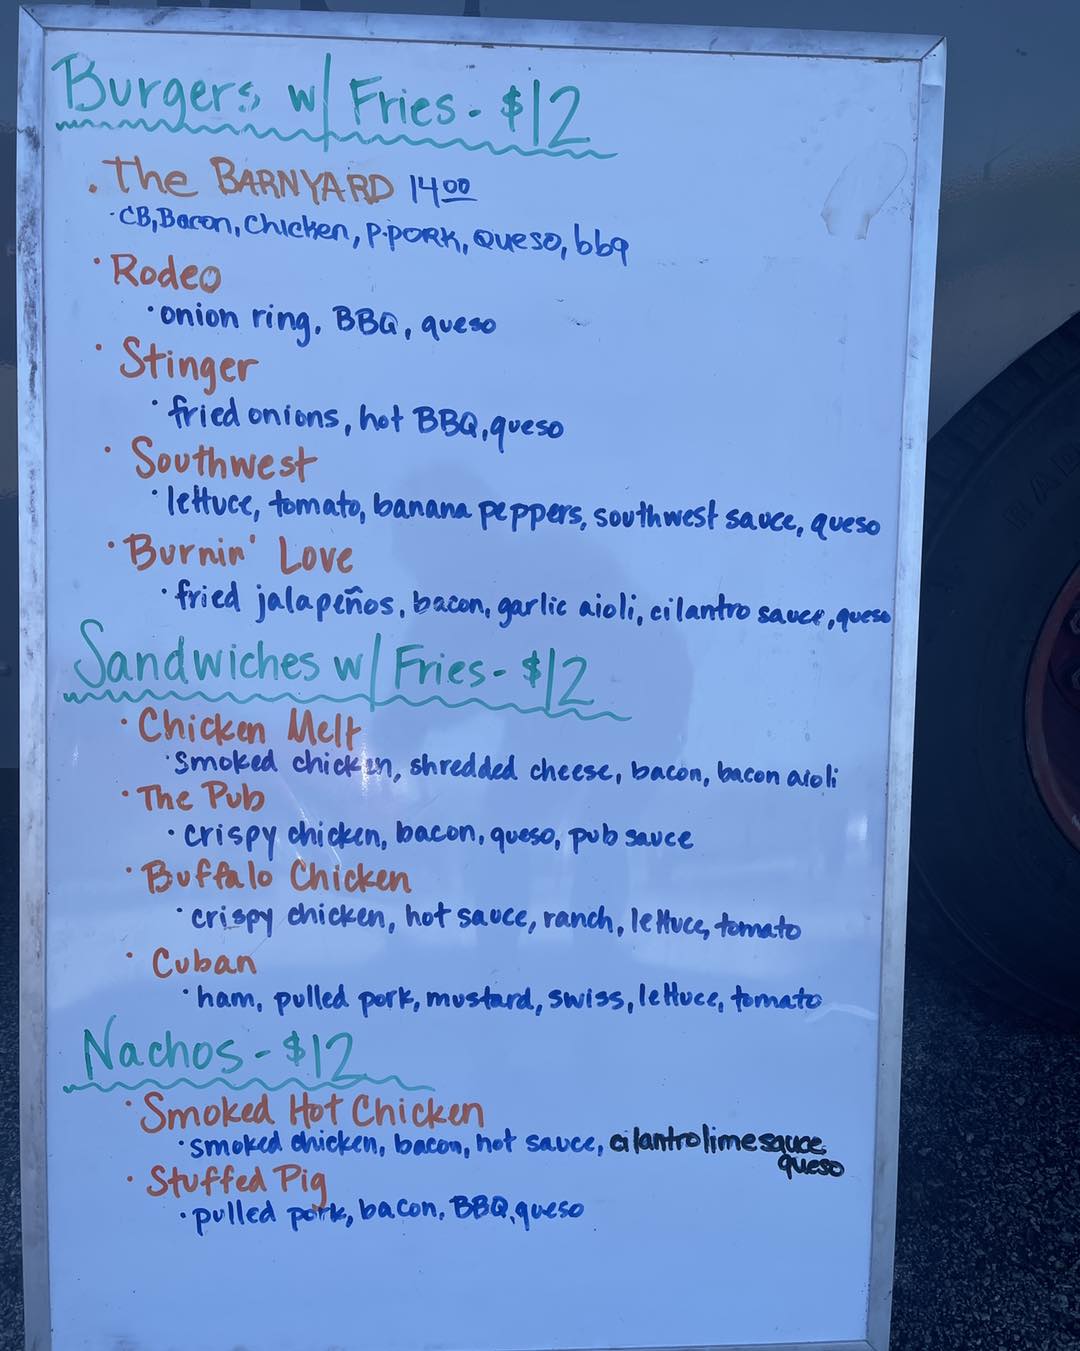 Burgers w/ Fries - $12
· The BARNYARD 1400
· CB, Bacon, Chicken, P.PORK, queso, bbq
· Rodeo
· onion ring, BBQ, queso
· Stinger
· fried onions, hot BBQ, queso
· Southwest
· lettuce, tomato, banana peppers, southwest sauce, queso
· Burnin' Love
· fried jalapeños, bacon, garlic aioli, cilantro sauce, queso
Sandwiches w/ Fries - $12
· Chicken Melt
· smoked chicken, shredded cheese, bacon, bacon aioli
· The Pub
· crispy chicken, bacon, queso, pub sauce
· Buffalo Chicken
· crispy chicken, hot sauce, ranch, lettuce, tomato
· Cuban
· ham, pulled pork, mustard, swiss, lettuce, tomato
Nachos - $12
· Smoked Hot Chicken
· smoked chicken, bacon, hot sauce, cilantro lime sauce
queso
· Stuffed Pig
· pulled pork, bacon, BBQ, queso